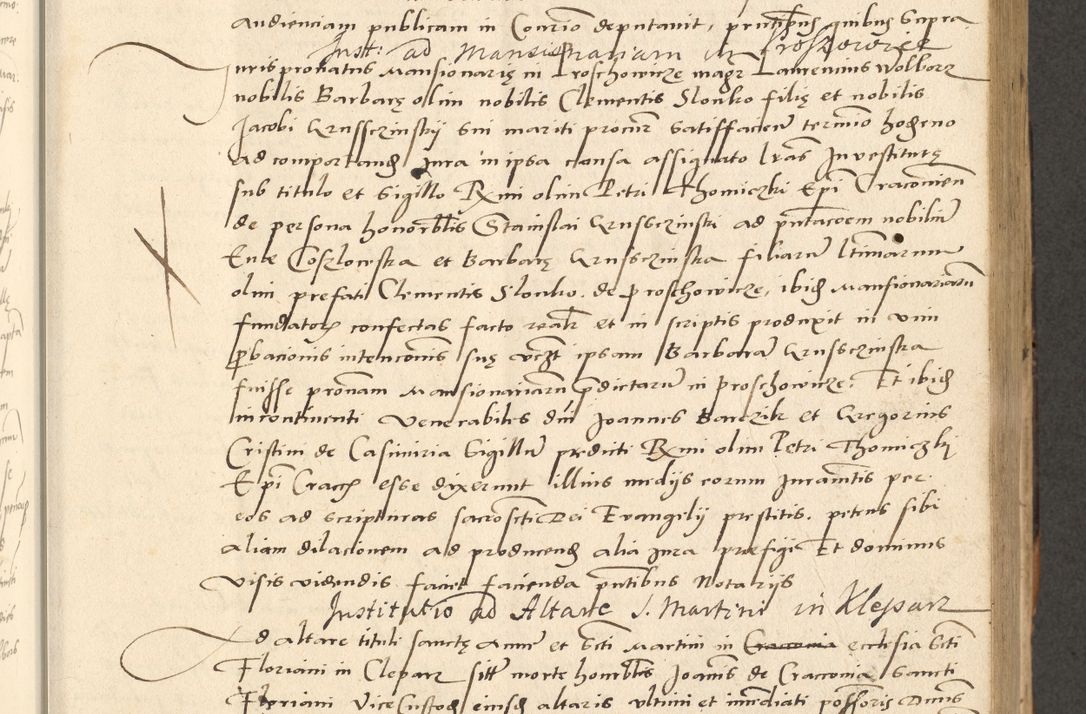 audienciam publicam in Conzio deputavit, pntibus quibus supra
Inst: ad Mansionariam in Proszovicze
Iurisprokatus Mansionarię in Proschowicze magr Laurencius Wolborz
nobilis Barbarę olim nobilis Clementis Slonko filię et nobilis
Jacobi Grussczinskij sui mariti procur satisfaciens termino hodierno
ad comportand Jura in ipsa causa assignato lras Investiturę
sub titulo et sigillo Rmi olim Petri Thomiczki Epi Cracovien
de persona honorblis Stanislai Grussczinski ad pntacoem nobilium
Evae Coslowska et Barbarę Grussczinska filiarum ltimarum
olim prefati Clementis Slonko. de Proschowicze, ibid Mansionariarum
fundatoris confectas facto realr et in scriptis produxit in vim
probacionis intencionis suę vczt ipsam Barbaram Grussczinska
fuisse pronam Mansionariarum pdictarum in Proschowicze: Et ibid
incontinenti venerabiles dni Joannes Barczik et Gregorius
Cristini de Casimiria sigillum predicti Rmi olim Petri Thomiczkj
Epi Cracen esse dixerunt illius medijs eorum Juramentis per
eos ad scripturas sacrosctas Dei Evangelij prestitis. petens sibi
aliam dilacionem ad producend alia Jura prefigi Et dominus
visis videndis faciet facienda pntibus Notarijs
Institutio ad Altare S. Martini in Kleparz
Ad altare tituli sanctę Annę et Scti Martini in Cracovia ecclesia Scti
Floriani in Cleparz sitte morte honorblis Joanis de Cracovia Sancti
Floriani ViceCustodis eiusd altaris ultimi et immediati possoris Duns